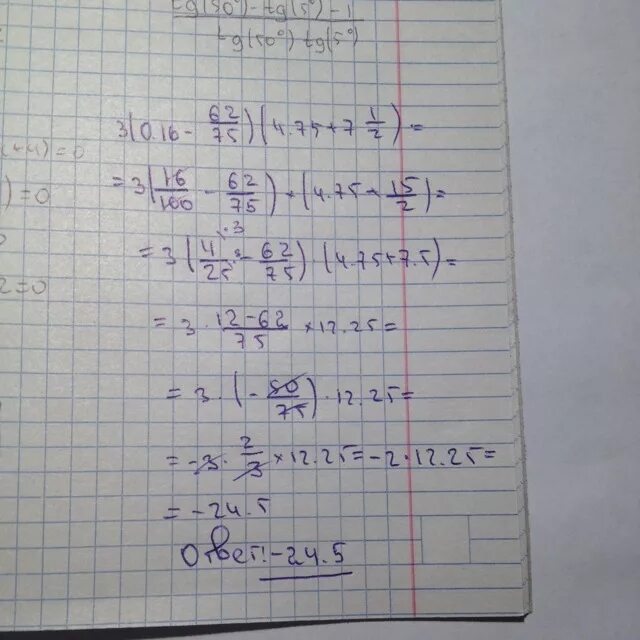 tg(50°)-tg(5°)-1
tg(50°) tg(5°)
3(0.16 - 62/75)(4.75+7 1/2)=
+4)=0
=3(16/100 - 62/75)·(4.75+15/2)=
)=0
·3
=3(4/25 - 62/75)·(4.75+7.5)=
2=0
=3·12-62/75·12.25=
=3·(-50/75)·12.25=
=-3·2/3·12.25=-2·12.25=
=-24.5
Ответ:-24.5